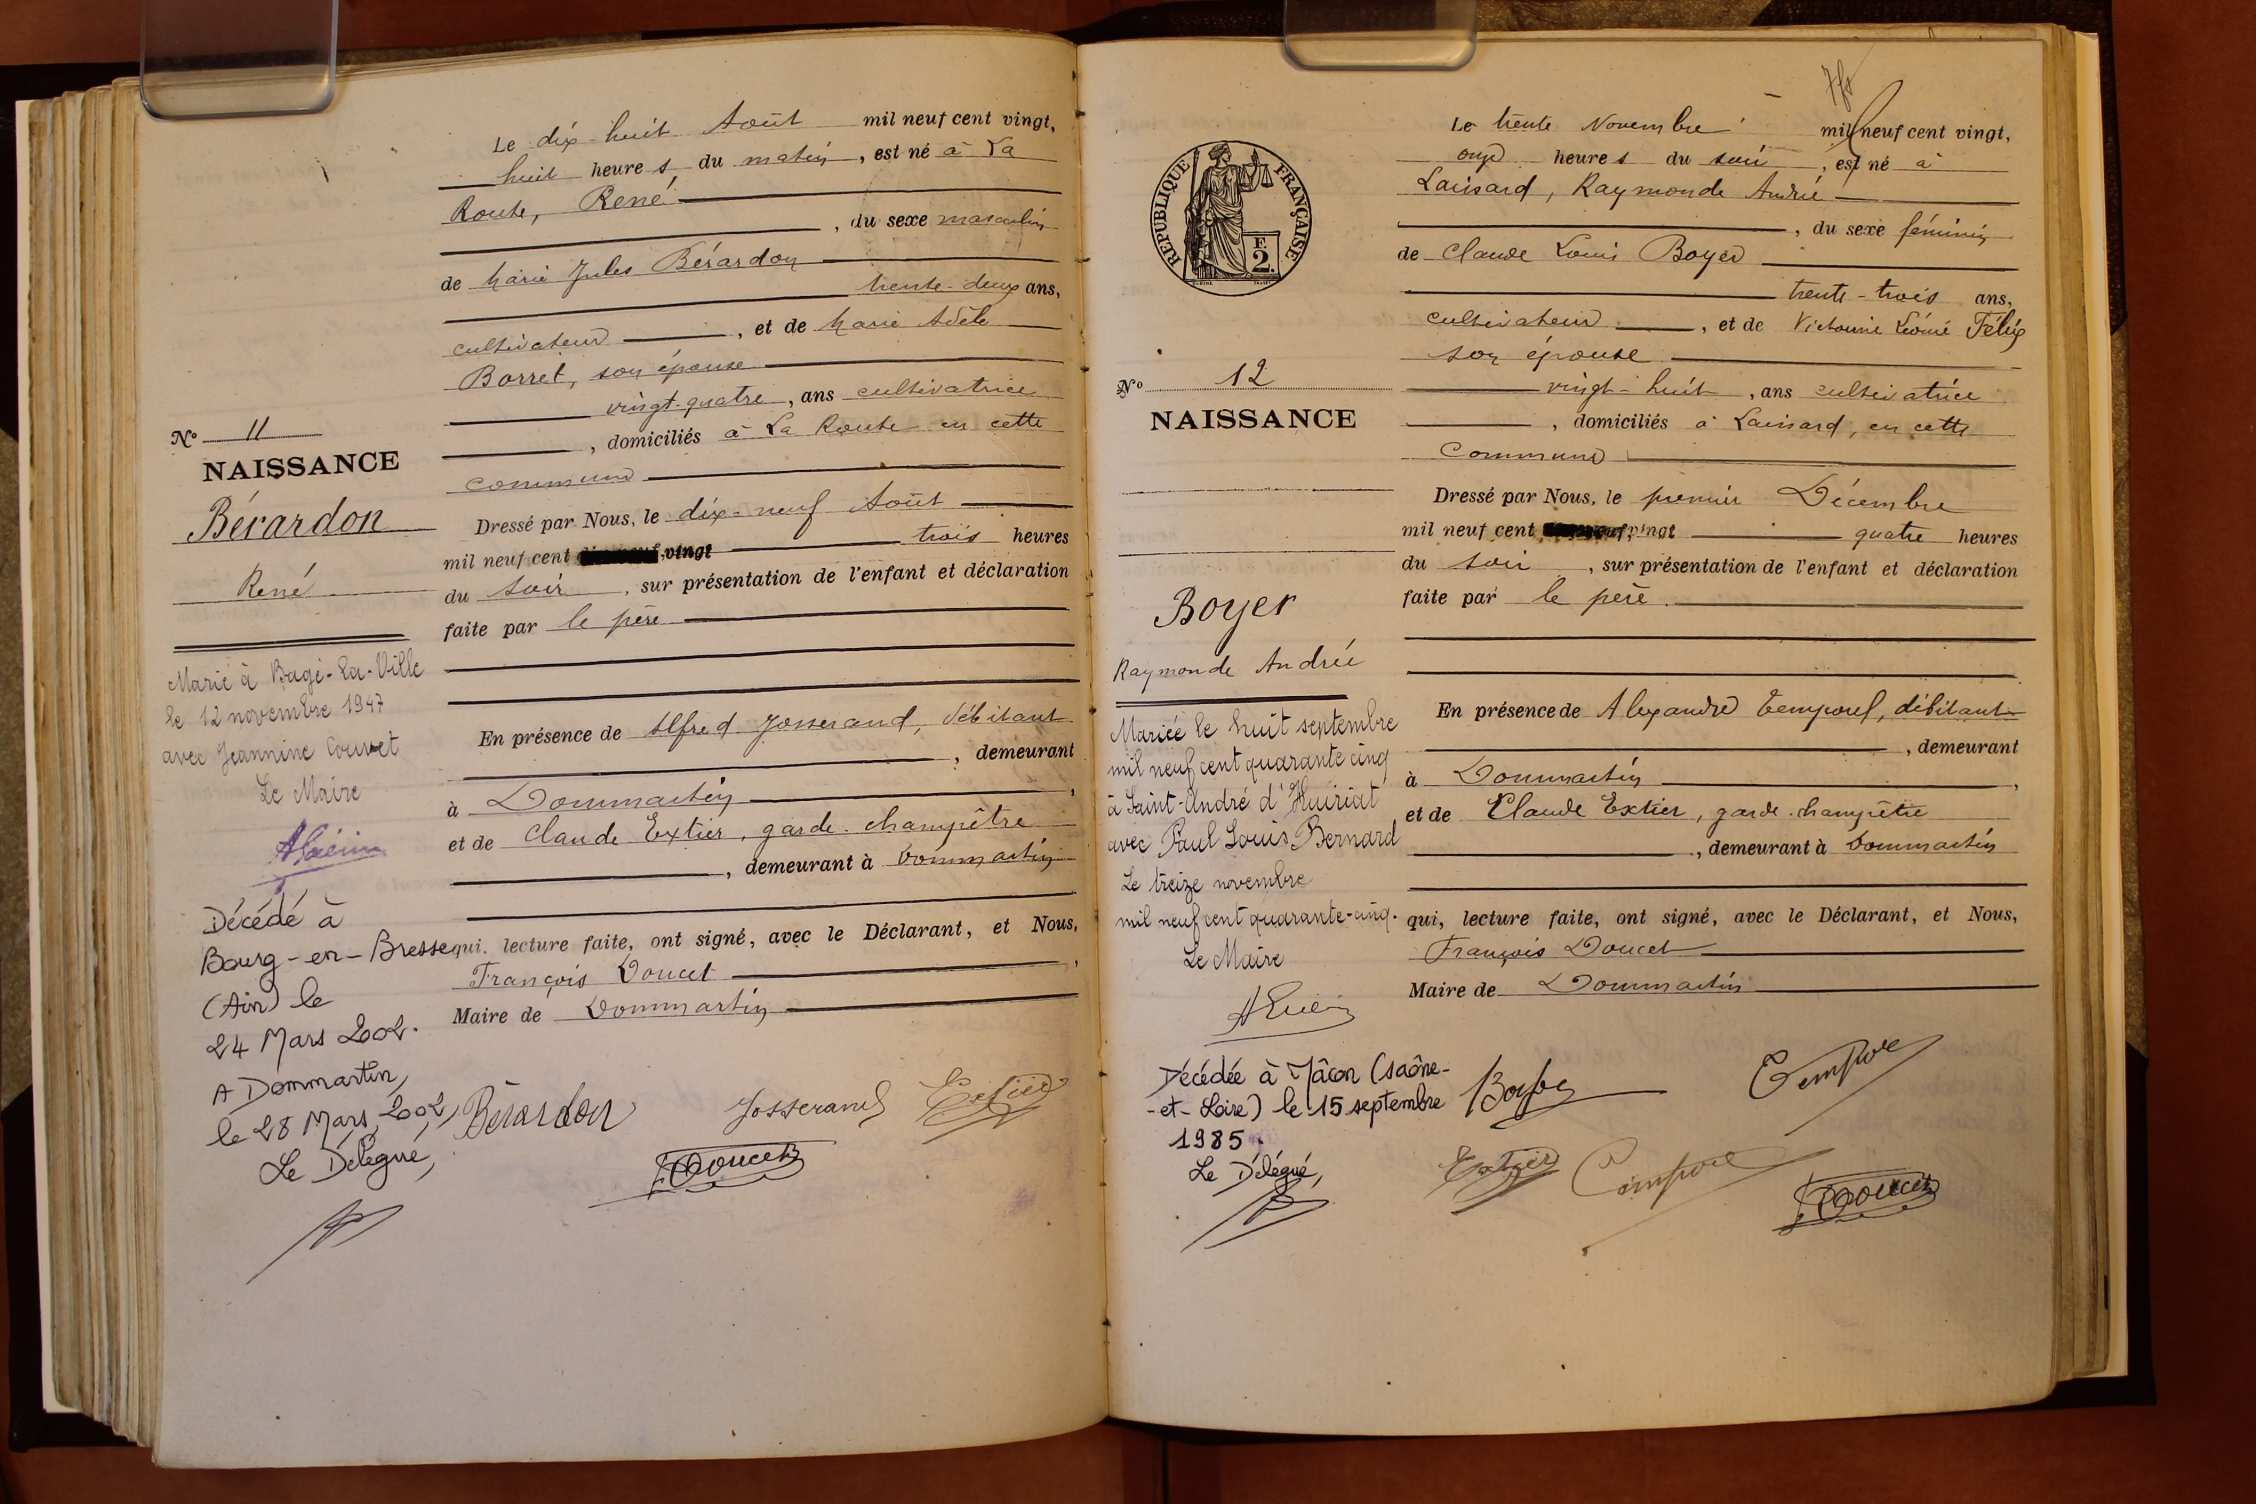 Le dix-huit Août mil neuf cent vingt,
huit heures du matin, est né à La
Route, René
, du sexe masculin
de Marie Jules Bérardon
trente-deux ans,
cultivateur, et de Marie Adèle
Borret, son épouse
vingt-quatre, ans cultivatrice
, domiciliés à La Route en cette
commune
Dressé par Nous, le dix-neuf Août
mil neuf cent vingt trois heures
du soir, sur présentation de l'enfant et déclaration
faite par le père
En présence de Alfred Josserand, débitant
, demeurant
à Dommartin,
et de Claude Extier, garde-champêtre
, demeurant à Dommartin
qui, lecture faite, ont signé, avec le Déclarant, et Nous,
François Doucet,
Maire de Dommartin
Bérardon Josserand Extier
Doucet
N° 11
NAISSANCE
Bérardon
René
Marié à Bagé-La-Ville
le 12 novembre 1947
avec Jeannine Couvet
Le Maire
Décédé à
Bourg-en-Bresse
(Ain) le
24 Mars 2002.
A Dommartin,
le 28 Mars 2002,
Le Délégué,
RÉPUBLIQUE FRANÇAISE
F.
2.
Le trente Novembre mil neuf cent vingt,
onze heures du soir, est né à
Laissard, Raymonde Andrée
, du sexe féminin
de Claude Louis Boyer
trente-trois ans,
cultivateur, et de Victorine Léonie Félix
son épouse
vingt-huit, ans cultivatrice
, domiciliés à Laissard, en cette
commune
Dressé par Nous, le premier Décembre
mil neuf cent vingt quatre heures
du soir, sur présentation de l'enfant et déclaration
faite par le père.
En présence de Alexandre Temporel, débitant
, demeurant
à Dommartin,
et de Claude Extier, garde-champêtre
, demeurant à Dommartin
qui, lecture faite, ont signé, avec le Déclarant, et Nous,
François Doucet
Maire de Dommartin
Extier
Doucet
N° 12
NAISSANCE
Boyer
Raymonde Andrée
Mariée le huit septembre
mil neuf cent quarante cinq
à Saint-André d'Huiriat
avec Paul Louis Bernard
Le treize novembre
mil neuf cent quarante-cinq.
Le Maire
Décédée à Mâcon (Saône-
-et-Loire) le 15 septembre
1985.
Le Délégué,